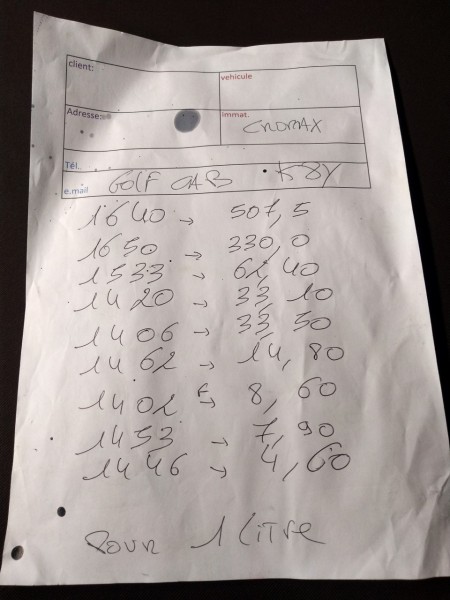 client:
vehicule
Adresse:
immat.
CROMAX
Tél.
e.mail
GOLF CAB • K8Y
1640 → 507,5
1650 → 330,0
1533 → 62,40
1420 → 33,10
1406 → 33,50
1462 → 14,80
1402 → 8,60
1453 → 7,90
1446 → 4,60
Pour 1 Litre